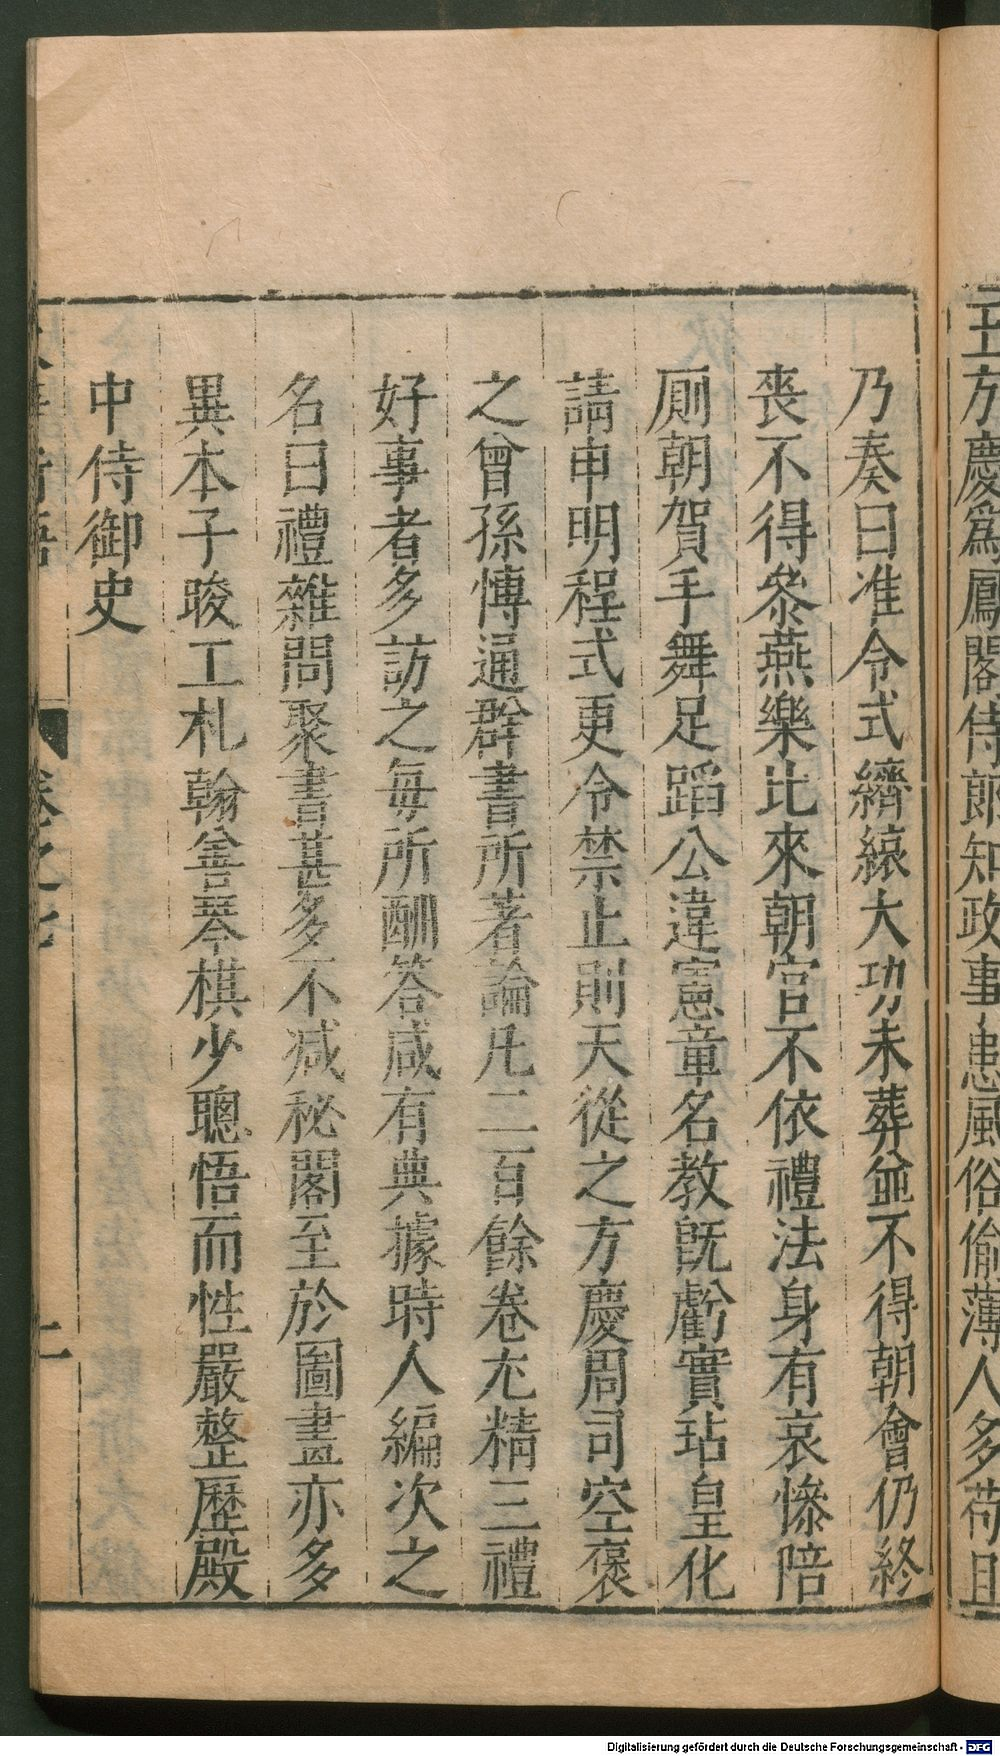 王方慶爲鳳閣侍郎知政事患風俗偷薄人多苟且
乃奏曰准令式縗大功未葬並不得朝會仍終
喪不得叅燕樂比來朝官不依禮法身有哀慘陪
厠朝賀手舞足蹈公違憲章名教旣虧實玷皇化
請申明程式更令禁止則天從之方慶周司空褒
之曾孫愽通群書所著論凡二百餘卷尤精三禮
好事者多訪之每所酬答咸有典據時人編次之
名曰禮雜問聚書甚多不减秘閣至於圖畫亦多
異本子晙工札翰善琴棋少聰悟而性嚴整歷殿
中侍御史
卷之七
Digitalisierung gefördert durch die Deutsche Forschungsgemeinschaft - DFG